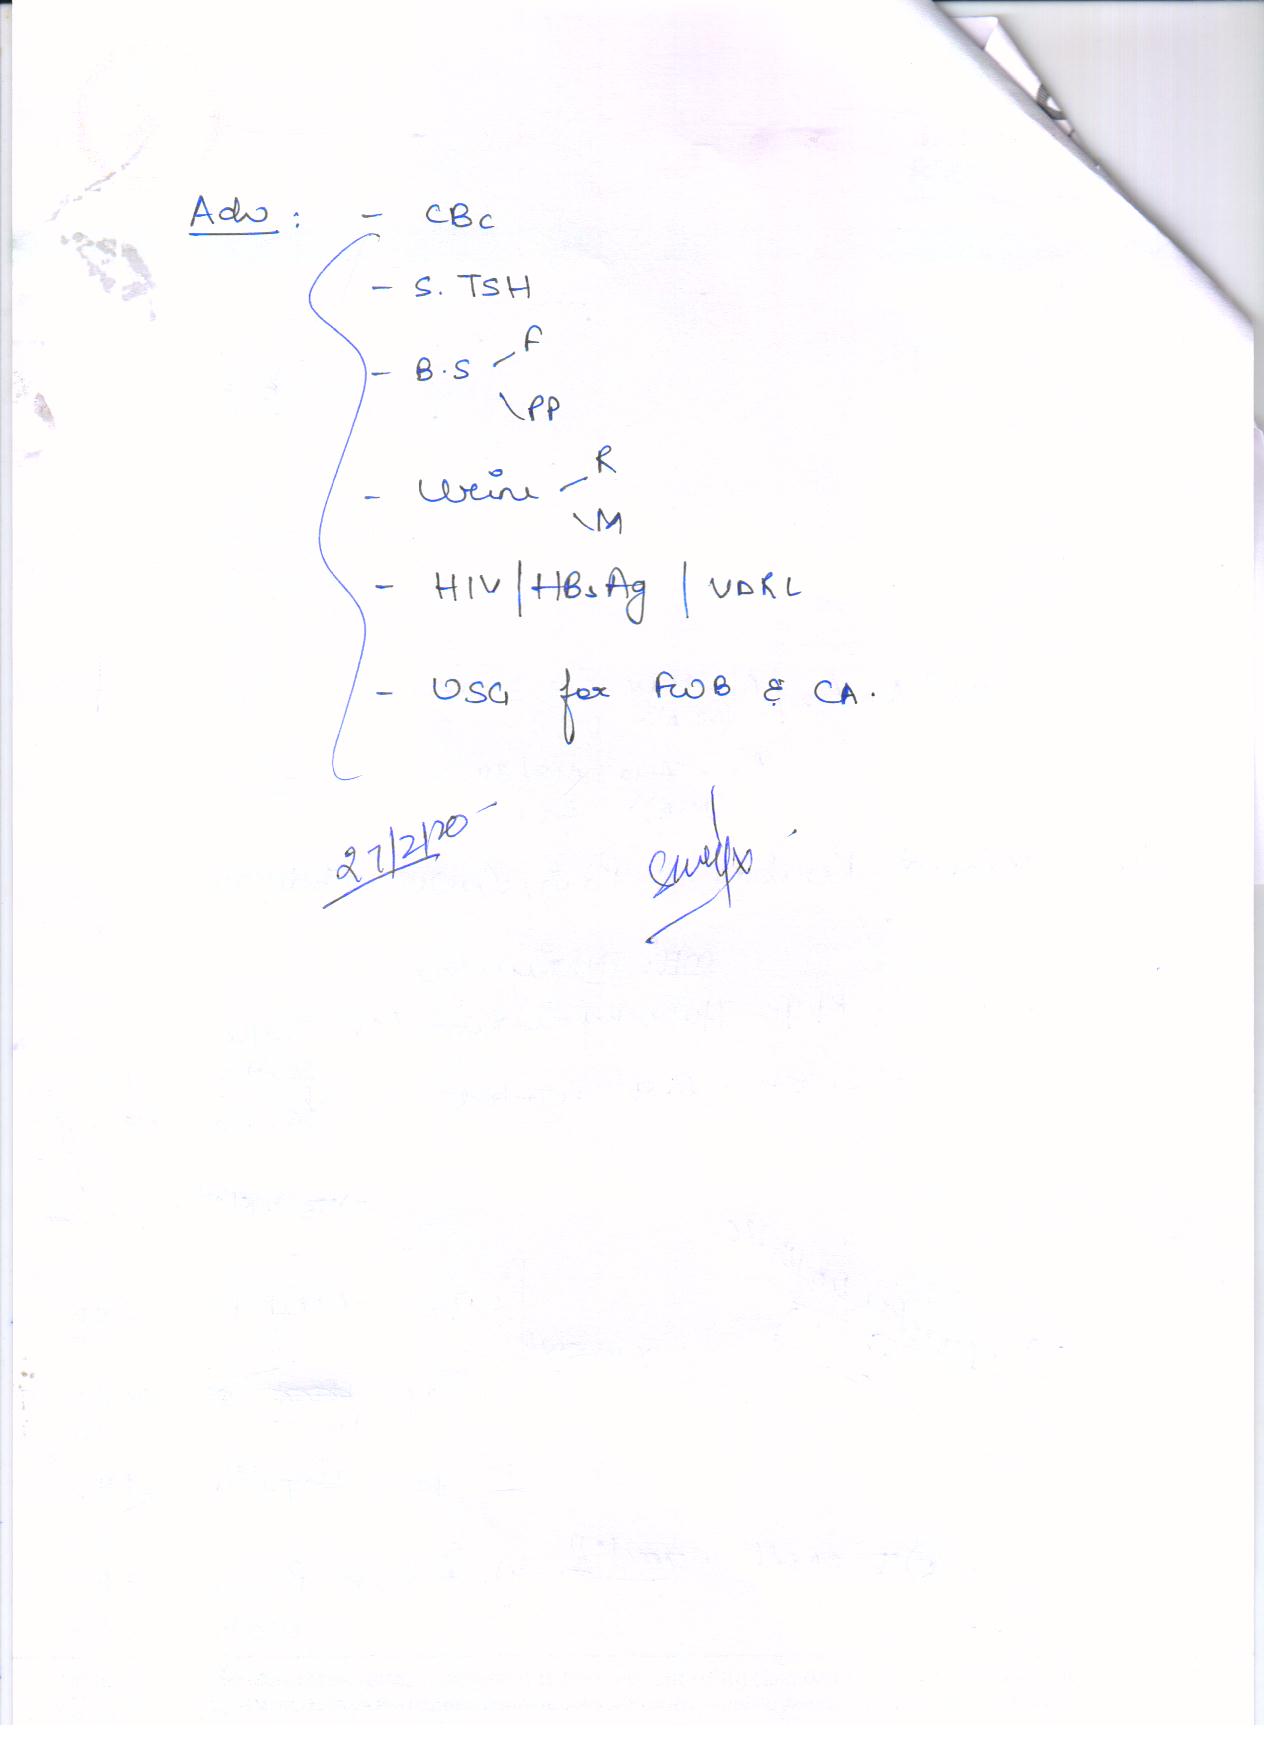 Adv : - CBC
- S. TSH
- B.S - F
\ PP
- Urine - R
\ M
- HIV | HBsAg | VDRL
- USG for FWB & CA.
27/2/20